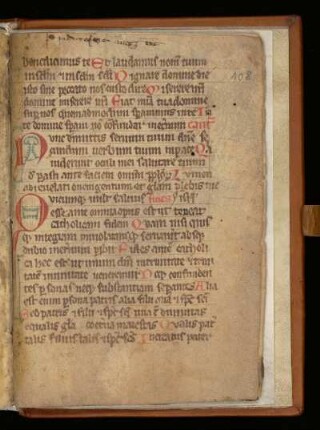 benedicimus te Et laudamus nom tuum
in sclm & in sclm scli Dignare domine die
isto sine peccato nos custodire Miserere nri
domine miserere nri Fiat mia tua domine
sup nos quemadmodum sperauimus in te In
te domine speraui no confundar in eternum
108
Nunc dimittis seruum tuum dne
secundum uerbum tuum in pace Quia
uiderunt oculi mei salutare tuum
Quod parasti ante faciem omium pplor Lumen
ad reuelationem gentium et glam plebis tue
Quicumq; uult saluus
esse ante omnia opus est ut teneat
catholicam fidem Quam nisi quis
q; integram inuiolatamq; seruauerit absq;
dubio in eternum pibit Fides autem catholi
ca hec est ut unum dm in trinitate & trini
tatem in unitate ueneremur Neq; confunden
tes psonas neq; substantiam separantes Alia
est enim psona patris alia filii alia & sps sci
Sed patris & filii & sps sci una est diuinitas
equalis gla coeterna maiestas Qualis pat
talis filius talis sps scs Increatus pater